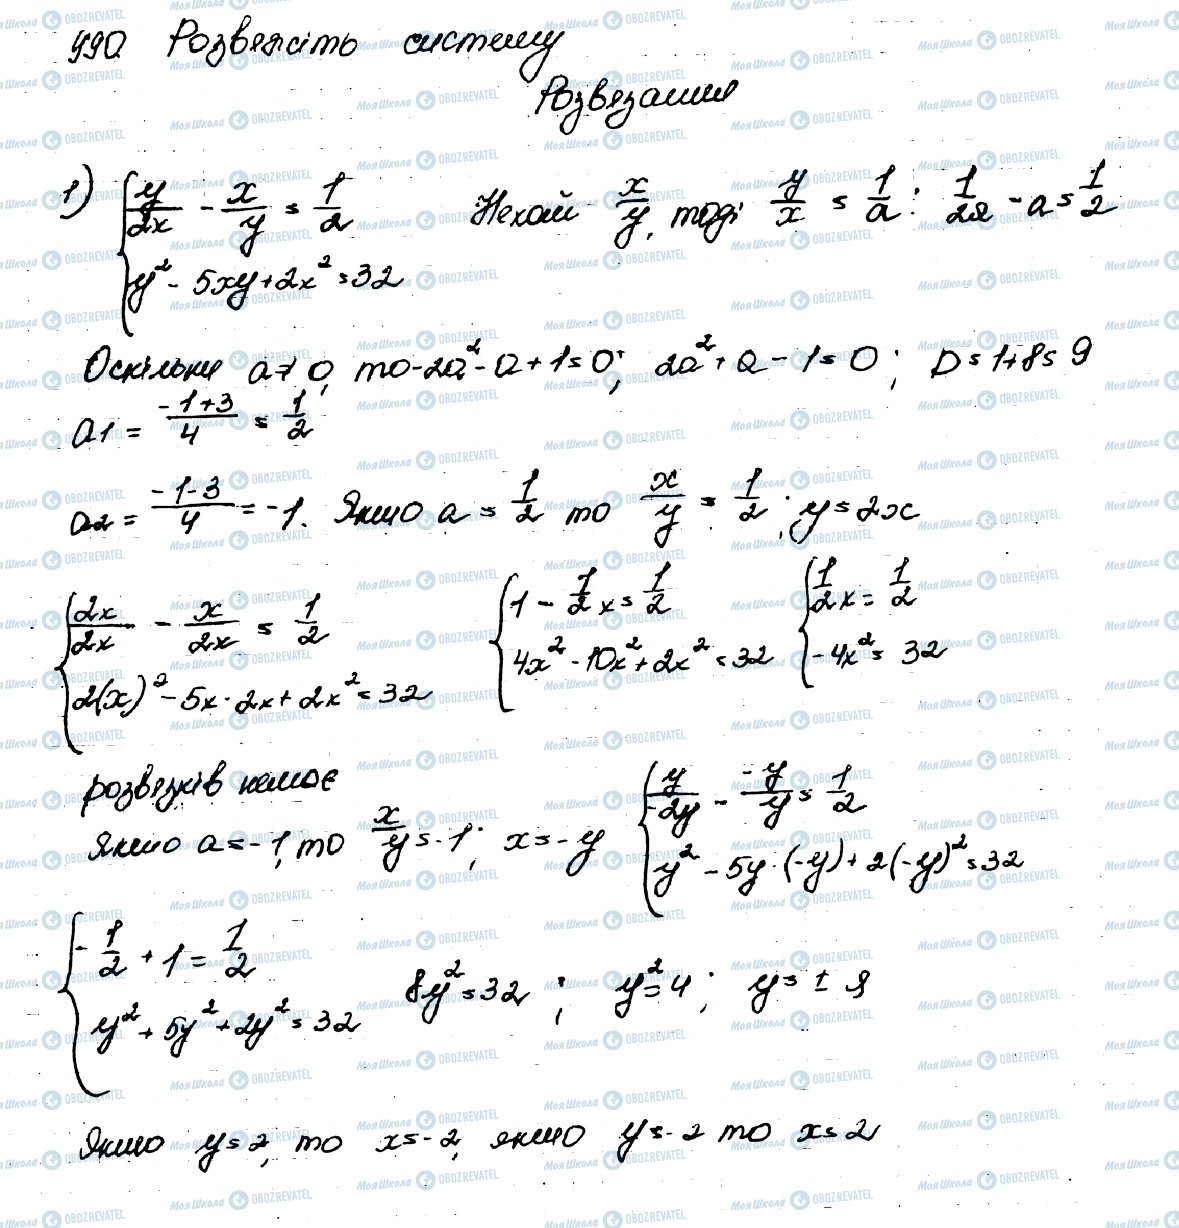 990 Розвяжіть систему
Розвязання
1) { y/2x - x/y = 1/2 Нехай x/y, тоді y/x = 1/a: 1/2a - a = 1/2
y² - 5xy + 2x² = 32
Оскільки a ≠ 0, то -2a² - a + 1 = 0; 2a² + a - 1 = 0; D = 1+8 = 9
a1 = (-1+3)/4 = 1/2
a2 = (-1-3)/4 = -1. Якщо a = 1/2 то x/y = 1/2; y = 2x
{ 2x/2x - x/2x = 1/2 { 1 - 1/2 x = 1/2 { 1/2 x = 1/2
2(x)² - 5x · 2x + 2x² = 32 4x² - 10x² + 2x² = 32 -4x² = 32
розвязків немає
Якщо a = -1, то x/y = -1; x = -y { y/-2y - -y/y = 1/2
y² - 5y · (-y) + 2(-y)² = 32
{ -1/2 + 1 = 1/2
y² + 5y² + 2y² = 32 8y² = 32; y² = 4; y = ± 2
Якщо y = 2, то x = -2, якщо y = -2 то x = 2